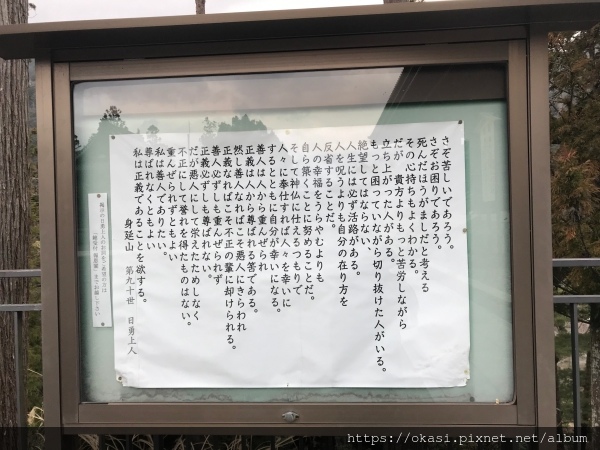 さぞ苦しいであろう。
さぞお困りであろう。
死んだほうがましだと考える
その心持ちもよくわかる。
だが 貴方よりもっと苦労しながら
立ち上がった人がある。
もっと困っていながら切り抜けた人がいる。
絶望してはならない
人生には必ず活路がある。
人を呪うよりも自分の在り方を
反省することだ。
人の幸福をうらやむよりも
自ら築くことに努めることだ。
そして神仏に仕えるつもりで
人々に奉仕すれば人々を幸いに
するとともに自分が幸いになる。
善人は人から重んぜられ
正義は人から尊ばれる筈である。
然し善人なればこそ悪人にきらわれ
正義なればこそ不正の輩に却けられる。
善人必ずしも重んぜられず
正義必ずしも尊ばれない。
だが悪人にして栄えたためしなく
不正にして誉れを得たものはない。
重んぜられずともよい
私は善人でありたい。
尊ばれなくともよい
私は正義であることを欲する。
身延山 第九十世 日勇上人
https://okasi.pixnet.net/album